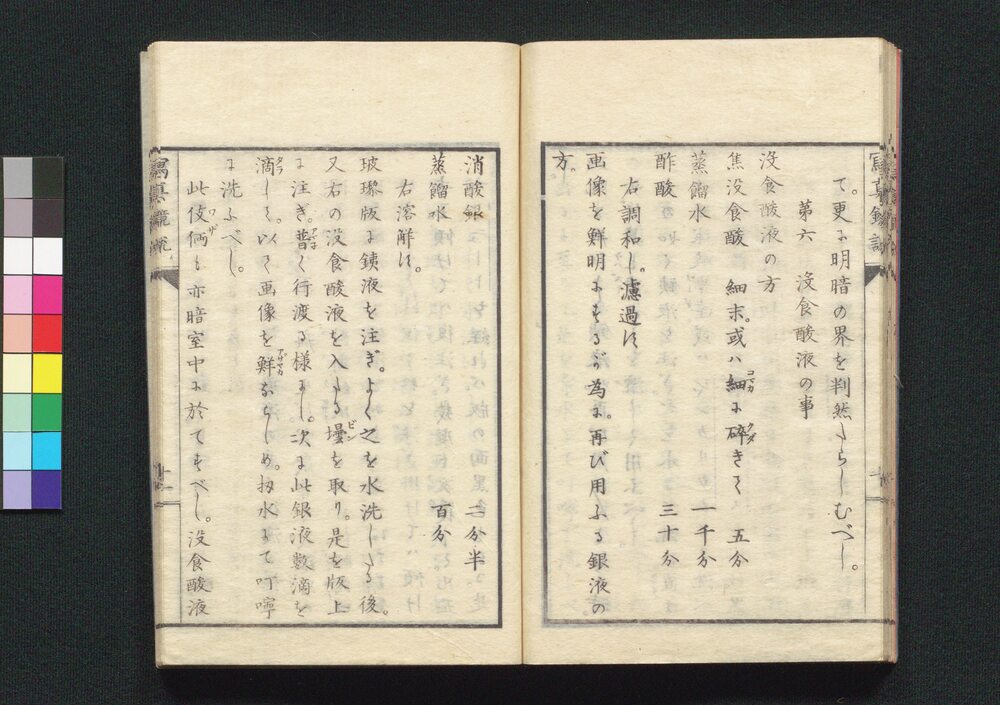 て。更に明暗の界を判然たらしむべし。
第六 没食酸液の事
没食酸液の方
焦没食酸 細末。或ハ細コマカに砕クダきて 五分
蒸餾水 一千分
酢酸 三十分
右調和し。濾過す。
画像を鮮明にするが為に。再び用ふる銀液の
方。
消酸銀 二分半
蒸餾水 百分
右溶解す。
玻瓈版に銕液を注ぎ。よく之を水洗したる後。
又右の没食酸液を入たる壜ビンを取り。是を版上
に注ぎ。普アマネく行渡る様にし。次に此銀液数滴を
滴タラして。以て画像を鮮アザヤカならしめ。扨水にて叮嚀
に洗ふべし。
此伎倆ワザも亦暗室中に於てすべし。没食酸液